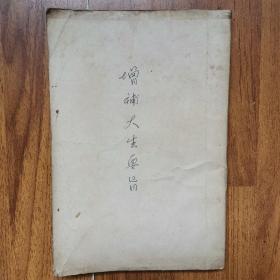 增補大生要旨